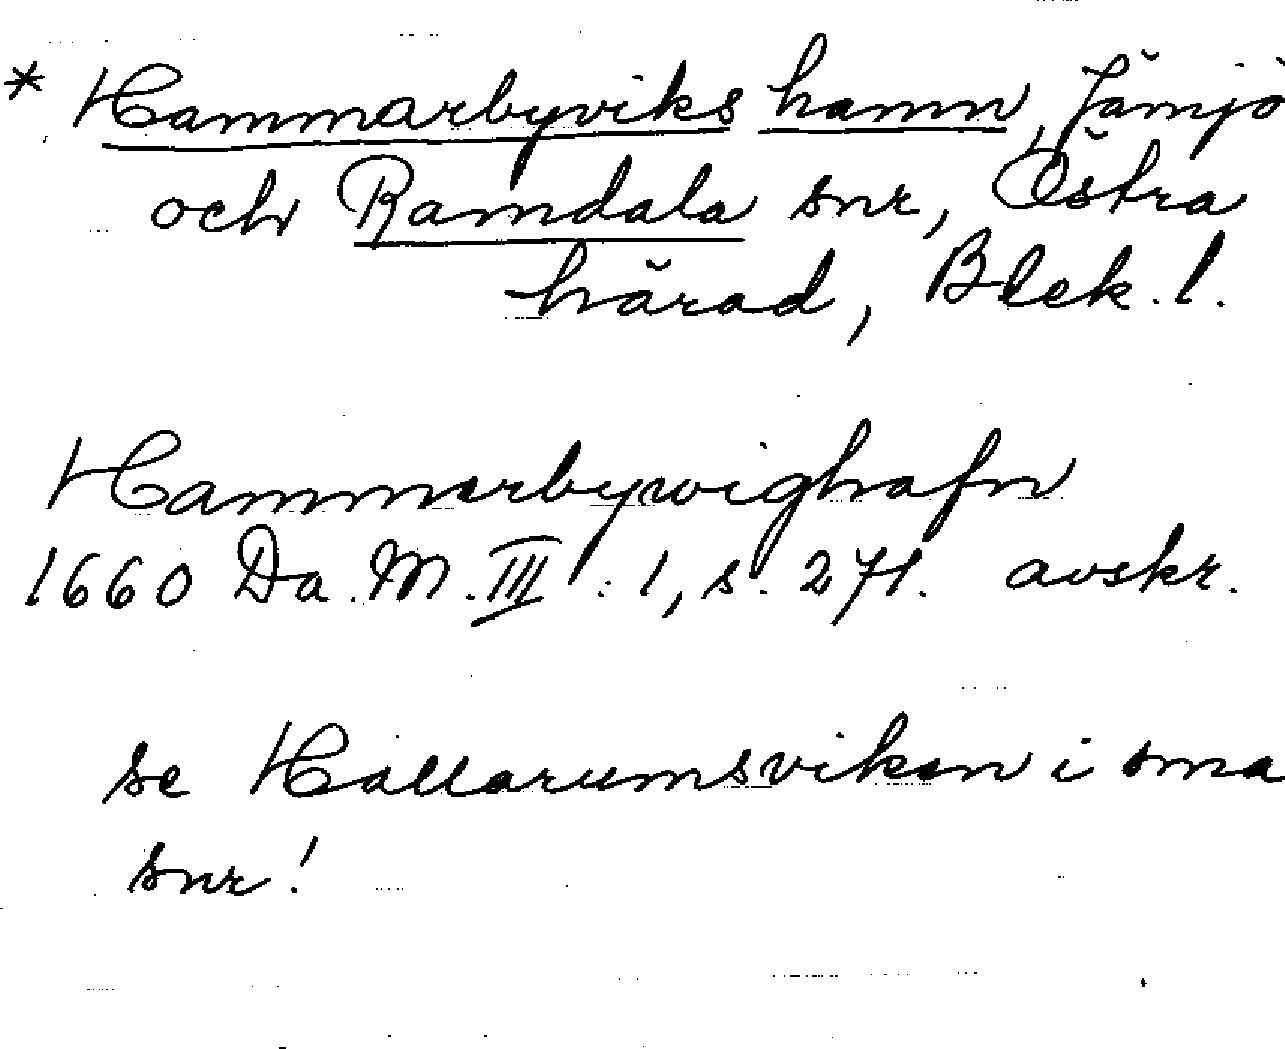 * Hammarbyviks hamn, Jämjö
och Ramdala snr, Östra
härad, Blek. l.
Hammarbywighafn
1660 Da. M. III : 1, s. 271. avskr.
se Hallarumsviken i sma
snr!